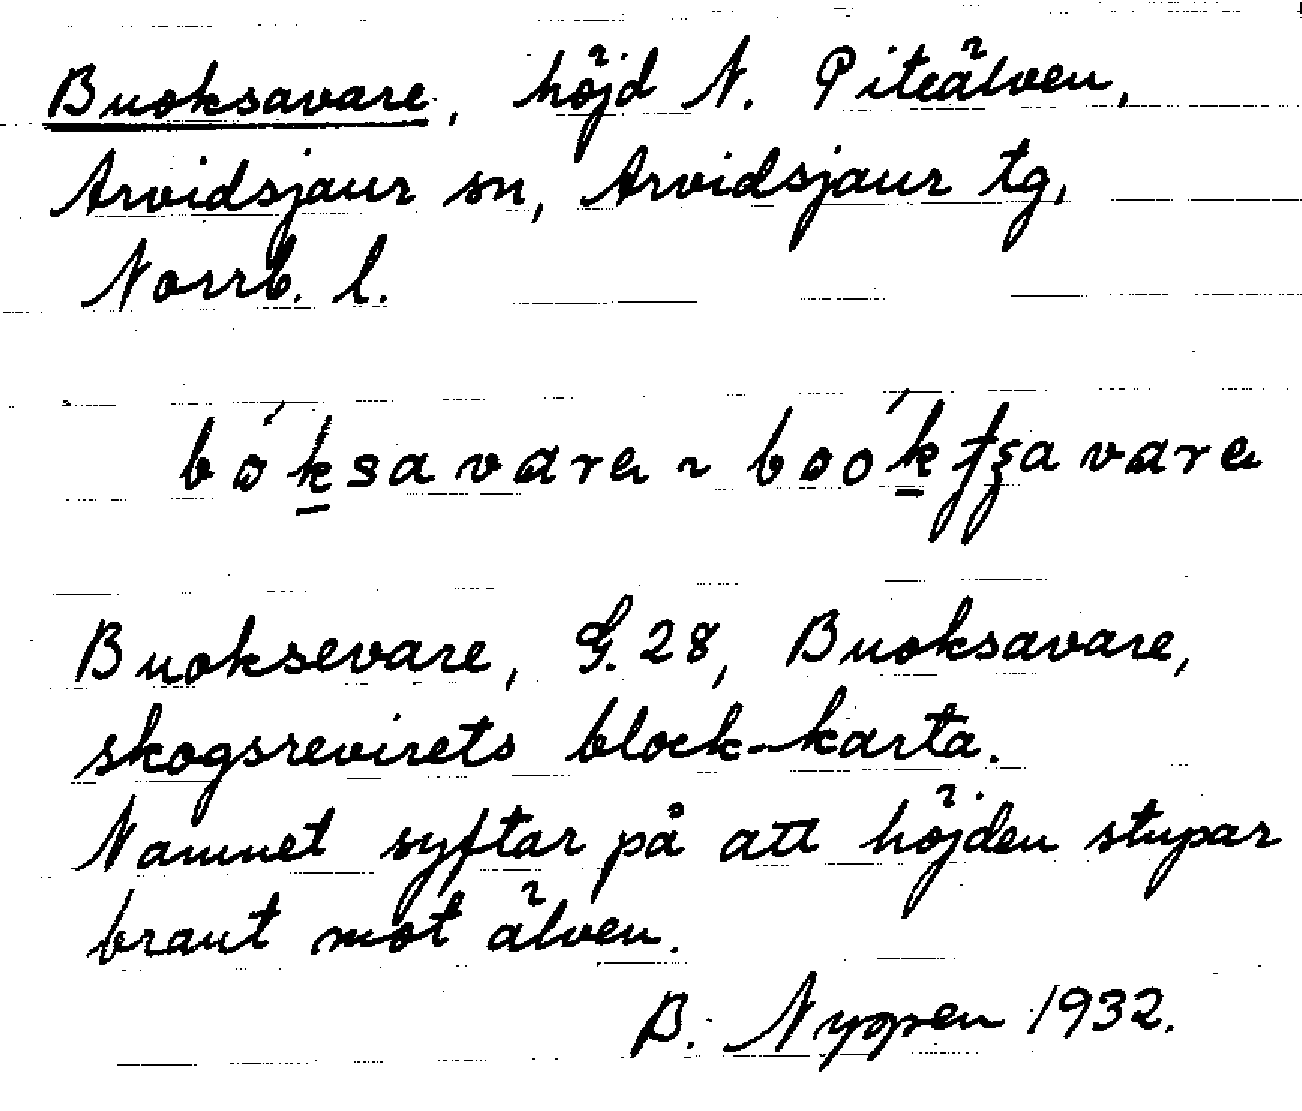 Buoksavare, höjd N. Piteälven,
Arvidsjaur sn, Arvidsjaur tg,
Norrb. l.
Buoksevare, G. 28, Buoksavare,
skogsrevirets block-karta.
Namnet syftar på att höjden stupar
brant mot älven.
B. Nyppen 1932.